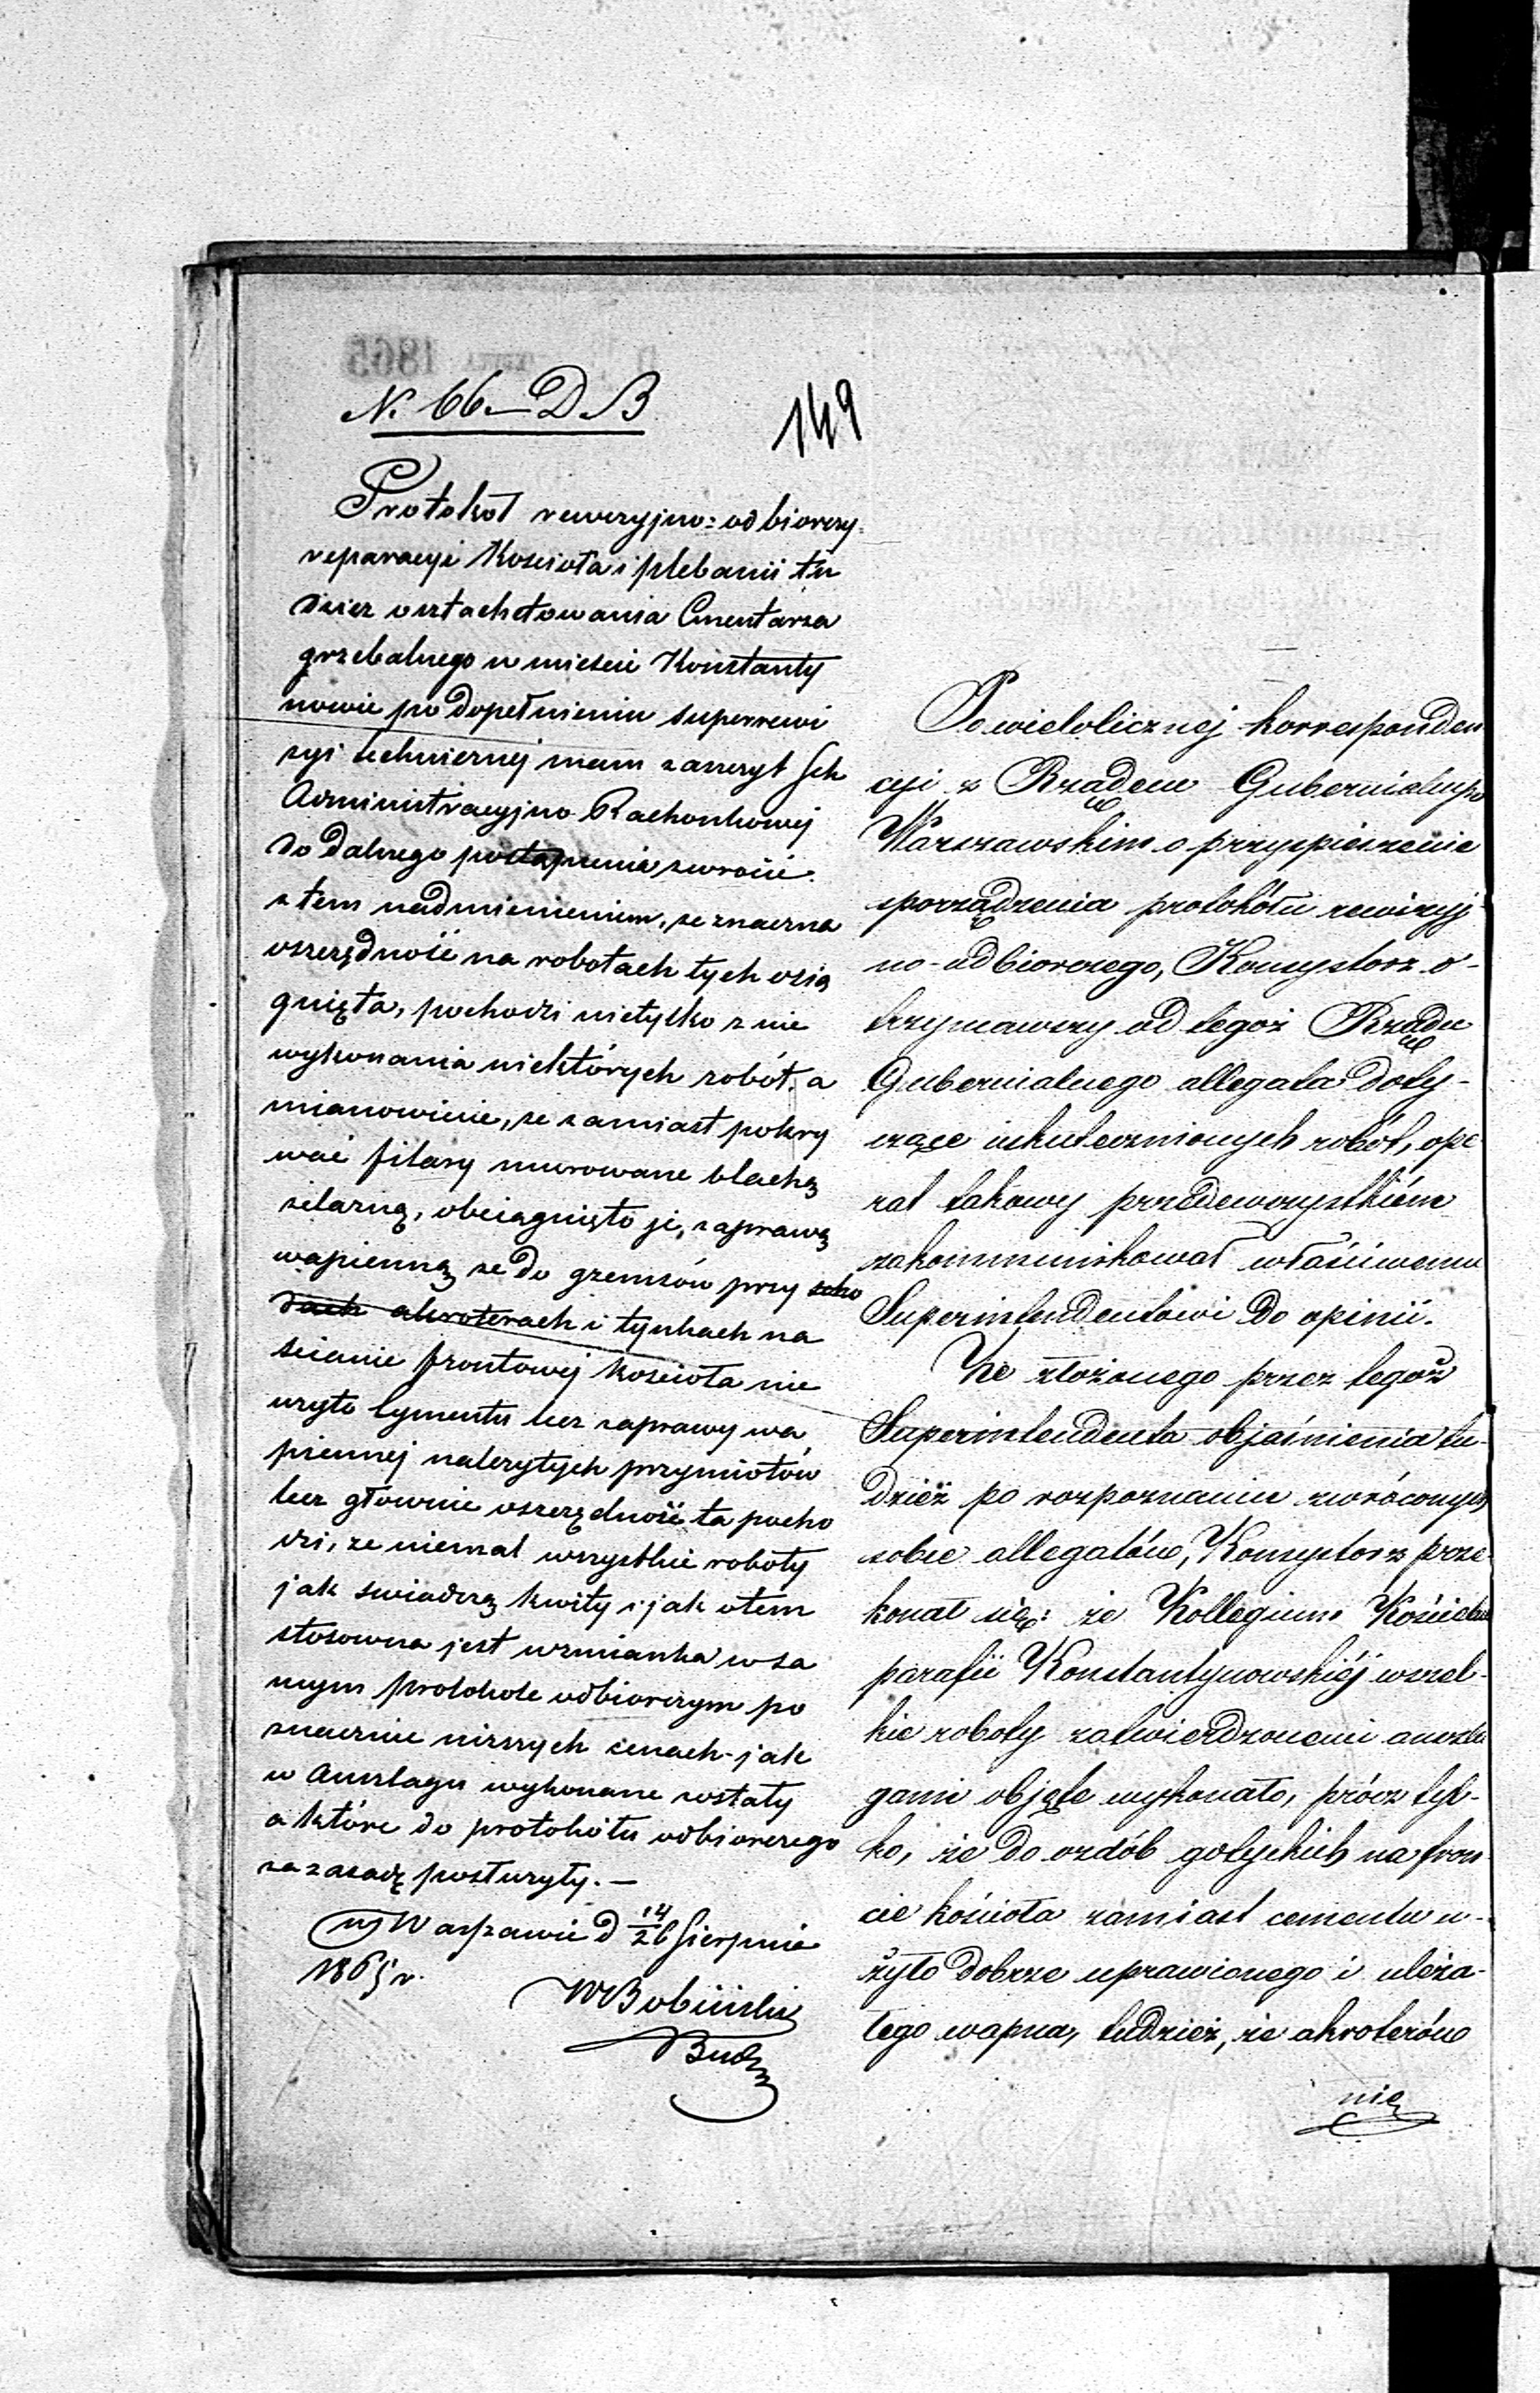 N. 66 – D. B
149
Protokół rewizyjno=odbiorczy
reparacyi Kościoła i plebanii tu
dzież osztachetowania Cmentarza
grzebalnego w mieście Konstanty
nowie po dopełnieniu superrewi
zyi technicznej mam zaszczyt Sek
Administracyjno Rachonkowej
do dalnego postąpienia zwrócić.
z tem nadmienieniem, że znaczna
oszczędność na robotach tych osią
gnięta, pochodzi nietylko z nie
wykonania niektórych robót, a
mianowicie, że zamiast pokry
wać filary murowane blachą
żelazną, obciągnięto je, zaprawą
wapienną że do gzemsów przy scho
dach akroterach i tynkach na
ścianie frontowej kościoła nie
użyto Cymentu lecz zaprawy wa
piennej należytych przymiotów
lecz głównie oszczędność ta pocho
dzi, że niemal wszystkie roboty
jak świadczą kwity i jak otem
stosowna jest wzmianka w sa
mym protokole odbiorczym po
znacznie niższych cenach jak
w Anszlagu wykonane zostały
a które do protokółu odbiorczego
za zasadę posłużyły. –
w Warszawie d 14/26 Sierpnia
1865 r.
WBobiński
Bud
Po wielolicznej korresponden
cyi z Rządem Gubernialnym
Warszawskim o przyspieszenie
sporządzenia protokółu rewizyj
no-odbiorczego, Konsystorz o-
trzymawszy od tegoż Rządu
Gubernialnego allegata doty-
czące uskutecznionych robót, ope
rat takowy przedewszystkiém
zakommunikował właściwemu
Superintendentowi do opinii.
Ze złożonego przez tegoż
Superintendenta objaśnienia tu-
dzież po rozpoznaniu zwróconych
sobie allegatów, Konsystorz prze
konał się: że Kollegium Kościelne
parafii Konstantynowskiéj wszel-
kie roboty zatwierdzonemi anszla
gami objęte wykonało, prócz tyl-
ko, że do ozdób gotyckich na fron
cie kościoła zamiast cementu u-
żyto dobrze uprawionego i uleża-
łego wapna, tudzież, że akroterów
nie